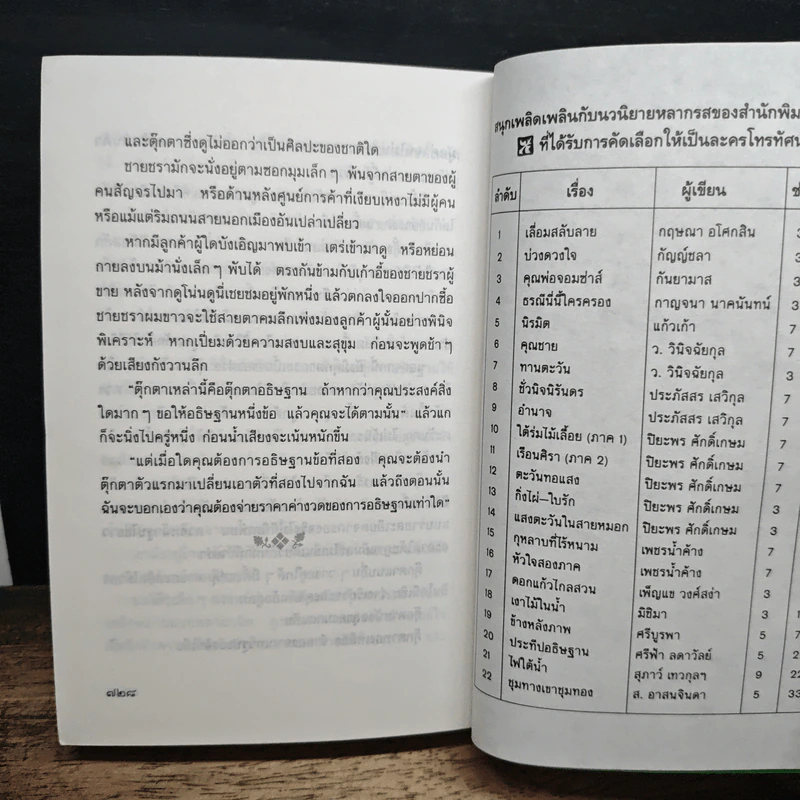 และตุ๊กตาซึ่งดูไม่ออกว่าเป็นศิลปะของชาติใด
ชายชรามักจะนั่งอยู่ตามซอกมุมเล็กๆ พ้นจากสายตาของผู้
คนสัญจรไปมา หรือด้านหลังศูนย์การค้าที่เงียบเหงาไม่มีผู้คน
หรือแม้แต่ริมถนนสายนอกเมืองอันเปล่าเปลี่ยว
หากมีลูกค้าผู้ใดบังเอิญมาพบเข้า เตร่เข้ามาดู หรือหย่อน
กายลงบนม้านั่งเล็กๆ พับได้ ตรงกันข้ามกับเก้าอี้ของชายชราผู้
ขาย หลังจากดูโน่นดูนี่เชยชมอยู่พักหนึ่ง แล้วตกลงใจออกปากซื้อ
ชายชราผมขาวจะใช้สายตาคมลึกเพ่งมองลูกค้าผู้นั้นอย่างพินิจ
พิเคราะห์ หากเปี่ยมด้วยความสงบและสุขุม ก่อนจะพูดช้าๆ
ด้วยเสียงกังวานลึก
“ตุ๊กตาเหล่านี้คือตุ๊กตาอธิษฐาน ถ้าหากว่าคุณประสงค์สิ่ง
ใดมากๆ ขอให้อธิษฐานหนึ่งข้อ แล้วคุณจะได้ตามนั้น” แล้วแก
ก็จะนิ่งไปครู่หนึ่ง ก่อนน้ำเสียงจะเน้นหนักขึ้น
“แต่เมื่อใดคุณต้องการอธิษฐานข้อที่สอง คุณจะต้องนำ
ตุ๊กตาตัวแรกมาเปลี่ยนเอาตัวที่สองไปจากฉัน แล้วถึงตอนนั้น
ฉันจะบอกเองว่าคุณต้องจ่ายราคาค่างวดของการอธิษฐานเท่าใด”
๗๒๘
สนุกเพลิดเพลินกับนวนิยายหลากรสของสำนักพิม
ที่ได้รับการคัดเลือกให้เป็นละครโทรทัศน
ลำดับ เรื่อง ผู้เขียน ช
1 เลื่อมสลับลาย กฤษณา อโศกสิน 3
2 บ่วงดวงใจ กัญญ์ชลา 3
3 คุณพ่อจอมซ่าส์ กันยามาส 3
4 ธรณีนี่นี้ใครครอง กาญจนา นาคนันทน์ 3
5 นิรมิต แก้วเก้า 7
6 คุณชาย ว. วินิจฉัยกุล 7
7 ทานตะวัน ว. วินิจฉัยกุล 3
8 ชั่วนิจนิรันดร ประภัสสร เสวิกุล 7
9 อำนาจ ประภัสสร เสวิกุล 7
10 ใต้ร่มไม้เลื้อย (ภาค 1) ปิยะพร ศักดิ์เกษม 7
11 เรือนศิรา (ภาค 2) ปิยะพร ศักดิ์เกษม 7
12 ตะวันทอแสง ปิยะพร ศักดิ์เกษม 7
13 กิ่งไผ่-ใบรัก ปิยะพร ศักดิ์เกษม 3
14 แสงตะวันในสายหมอก ปิยะพร ศักดิ์เกษม 3
15 กุหลาบที่ไร้หนาม เพชรน้ำค้าง 7
16 หัวใจสองภาค เพชรน้ำค้าง 7
17 ดอกแก้วไกลสวน เพ็ญแข วงศ์สง่า 3
18 เงาไม้ในน้ำ มิชิมา 3 1
19 ข้างหลังภาพ ศรีบูรพา 5 7
20 ประทีปอธิษฐาน ศรีฟ้า ลดาวัลย์ 5 2
21 ไฟใต้น้ำ สุภาว์ เทวกุลฯ 9 22
22 ชุมทางเขาชุมทอง ส. อาสนจินดา 5 33